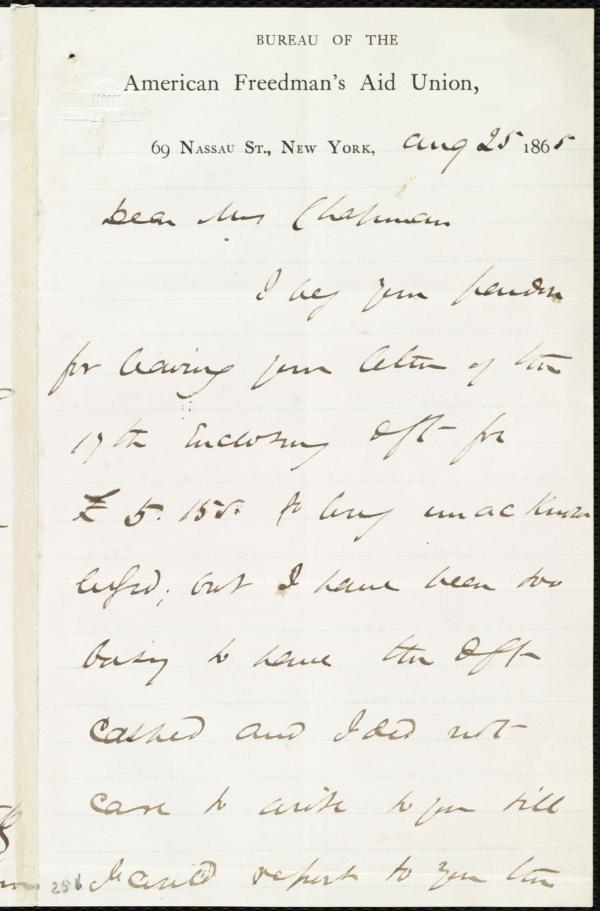 BUREAU OF THE
American Freedman's Aid Union,
69 NASSAU ST., NEW YORK, Aug 25 1865
Dear Mrs Chapman
I beg your pardon
for leaving your letter of the
17th Enclosing dft for
£ 5. 15s. so long unacknow
ledged; but I have been too
busy to have the dft
cashed and I did not
care to write to you till
I could report to you the
256